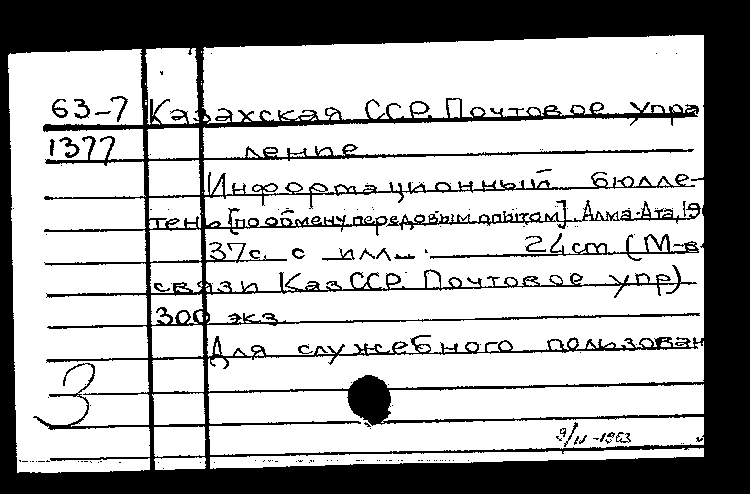 63-7 Казахская ССР. Почтовое упра
1377 ление
Информационный бюлле-
тень [по обмену передовым опытом]. Алма-Ата, 19
37с. с илл. 24cm (М-в
связи КазССР. Почтовое упр)
300 экз.
Для служебного пользован
3
9/II-1963